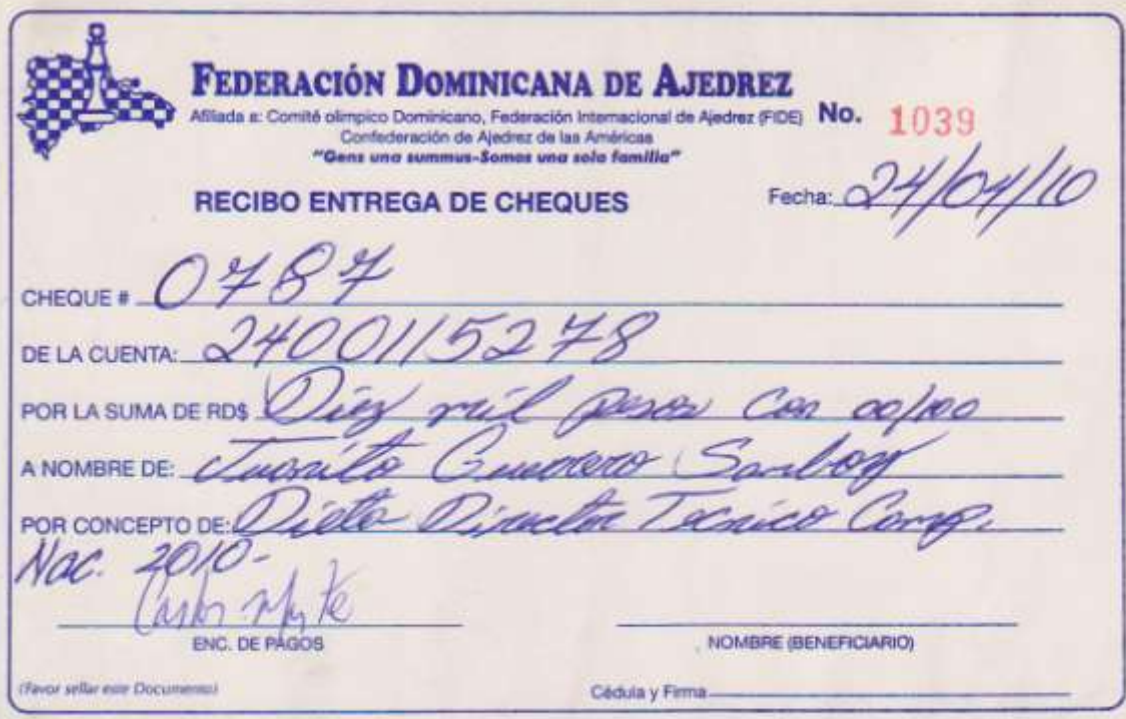 FEDERACIÓN DOMINICANA DE AJEDREZ
Afiliada a: Comité olimpico Dominicano, Federación Internacional de Ajedrez (FIDE) No. 1039
Confederación de Ajedrez de las Américas
"Gens una summus-Somos una sola familia"
RECIBO ENTREGA DE CHEQUES Fecha: 24/04/10
CHEQUE # 0787
DE LA CUENTA: 2400115278
POR LA SUMA DE RD$ Diez mil pesos con 00/100
A NOMBRE DE: Juanito Guerrero
POR CONCEPTO DE: Dieta Director Tecnico Camp.
Nac. 2010-
Carlos
ENC. DE PAGOS NOMBRE (BENEFICIARIO)
(Favor sellar este Documento) Cédula y Firma